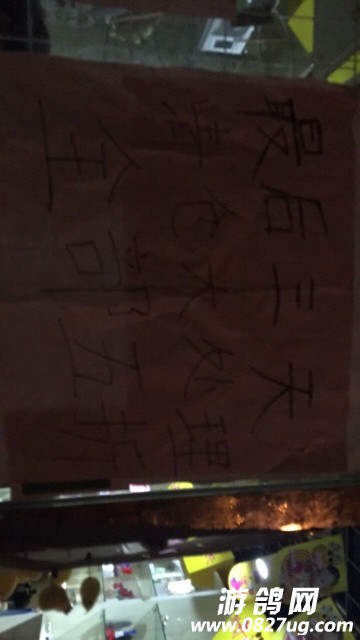 最后三天
清仓大处理
全部五折
游鸽网
www.0827ug.com